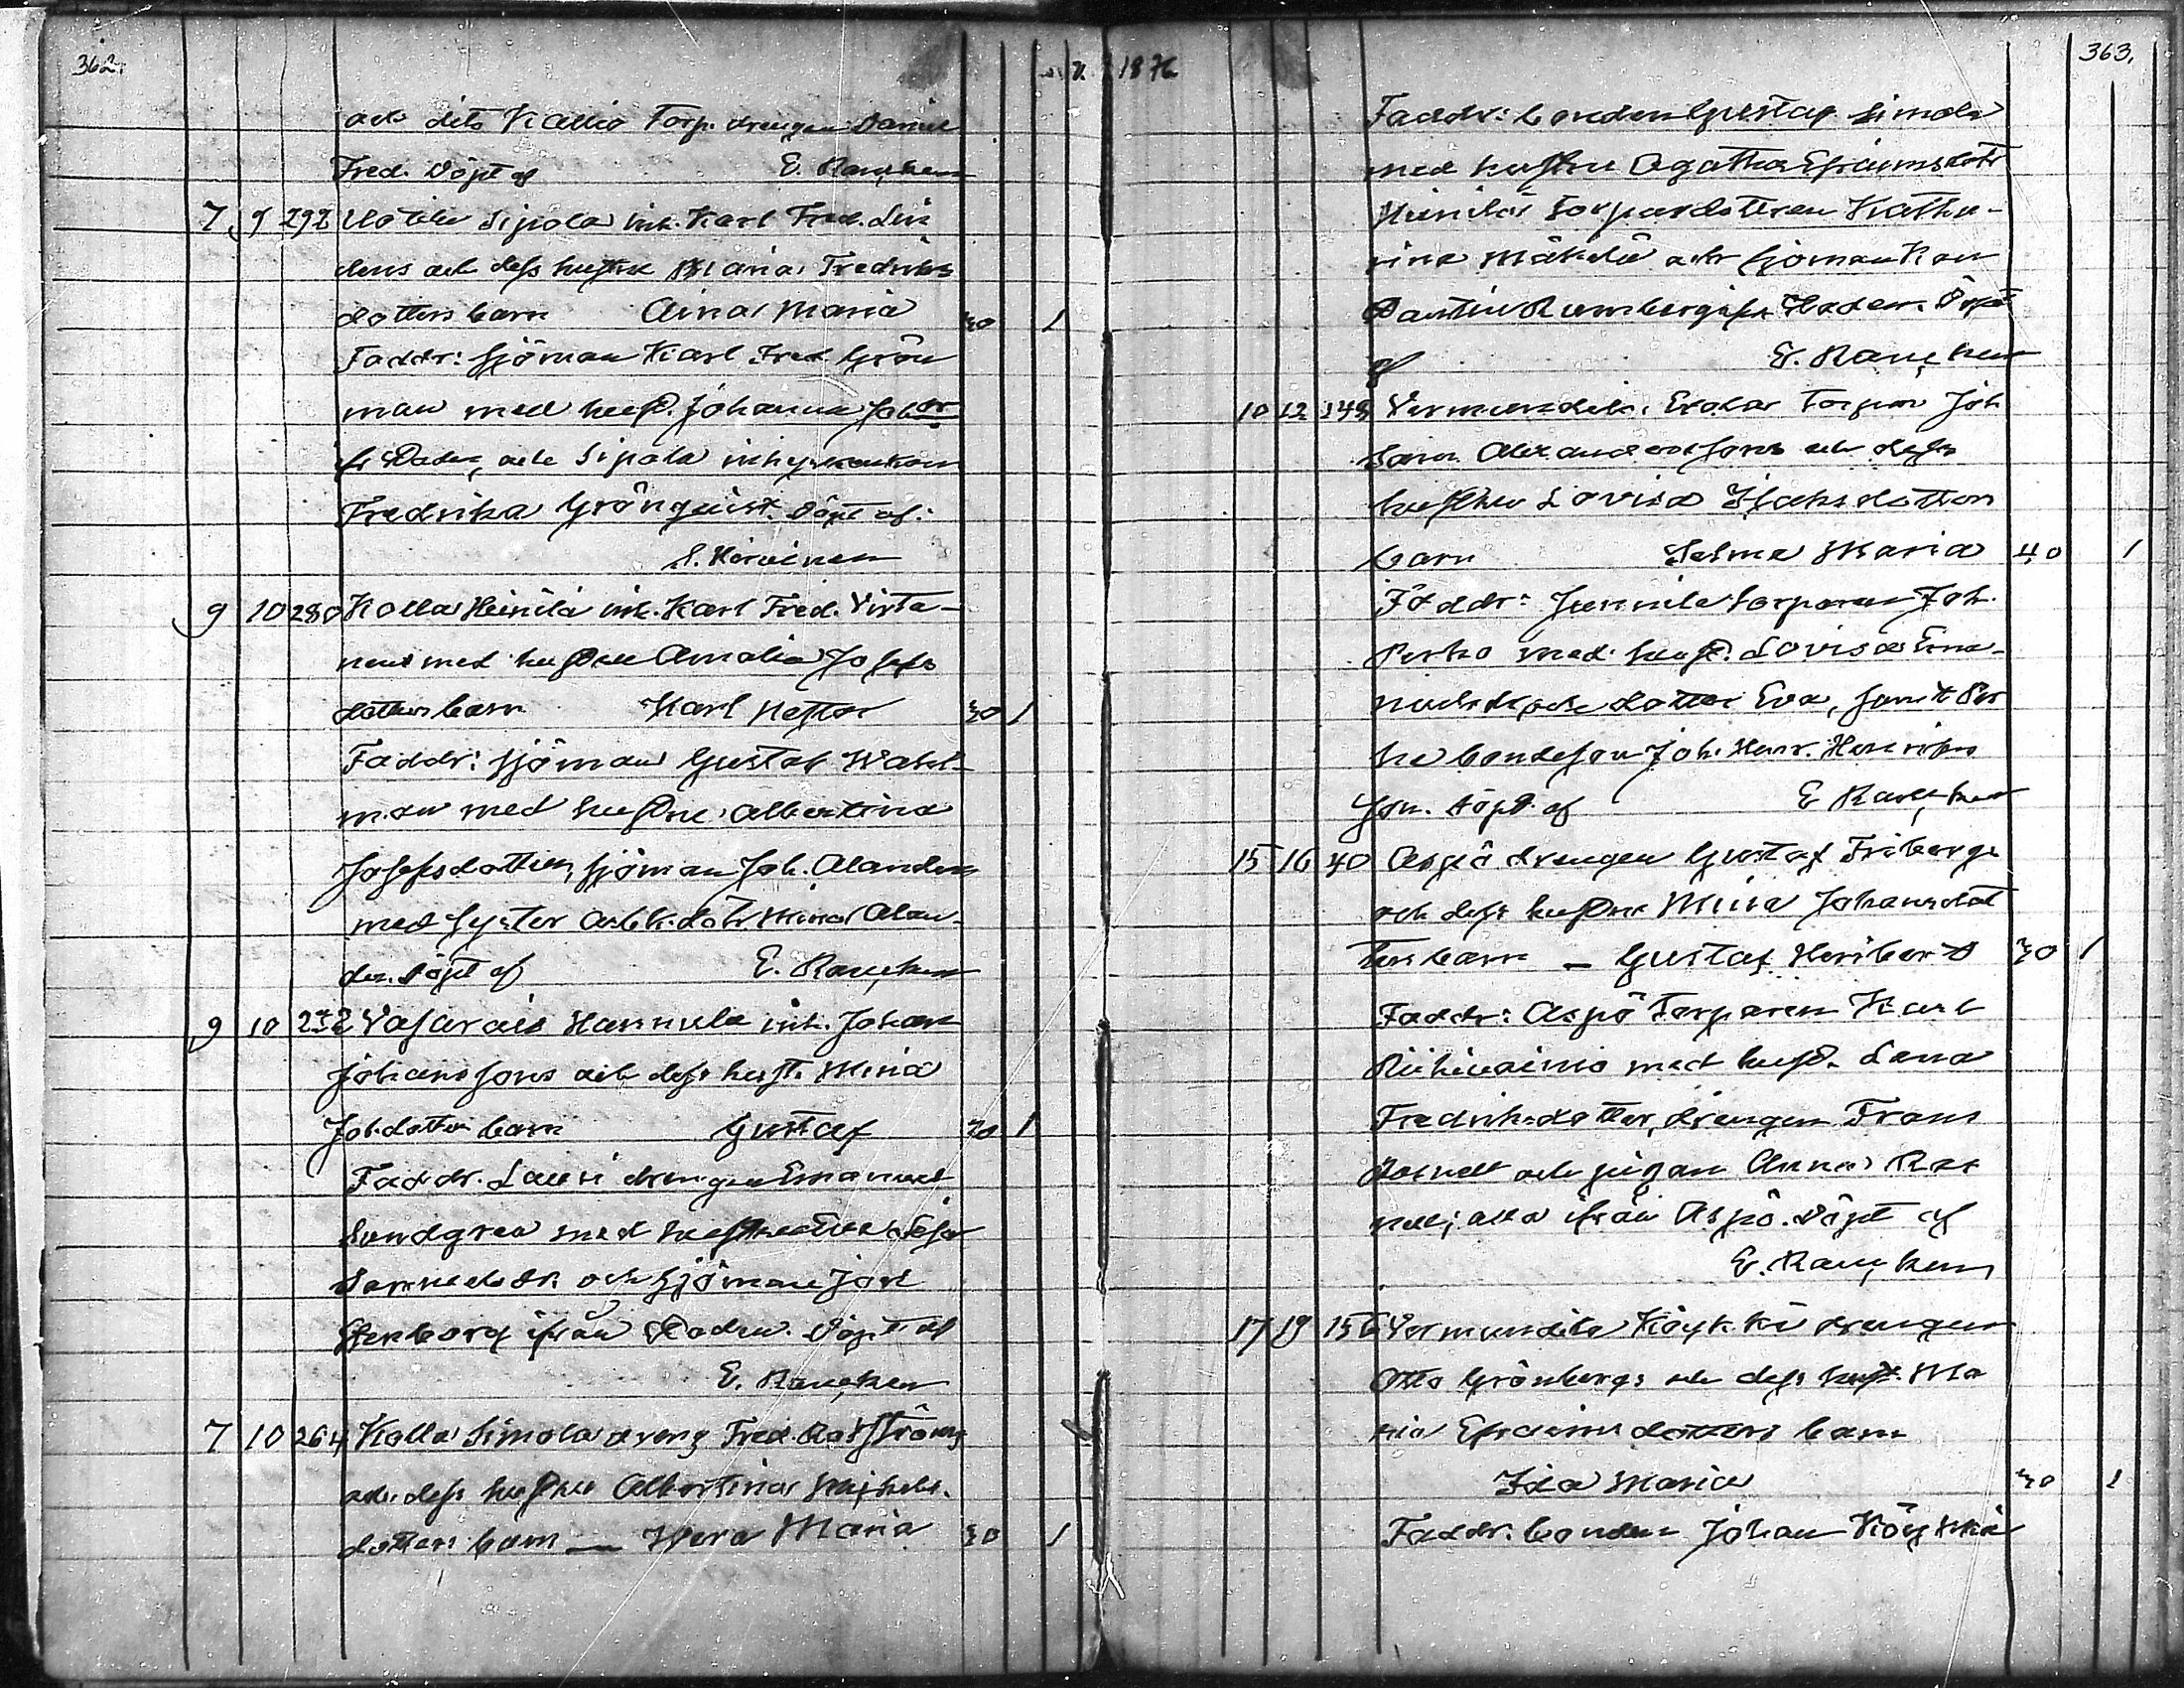 362.
och dito Kallio Torp. drengen Daniel
Fred. Döpt af E. Rancken
7 9 292 Sipola inh. Karl Fred. Lin
dens och dess hustru Maria Fredriks
dotters barn Aina Maria 30 1
Faddr: sjöman Karl Fred. Grön
man med hust. Johanna Johdr
fr Staden, och Sipola inhyseenkan
Fredrika Grönquist. Döpt af:
S. Hirvinen
9 10 280 Kolla Heinilä inh. Karl Fred. Virta-
nens med hustru Amalia Josefs
dotters barn Karl Nestor 30 1
Faddr: sjöman Gustaf Wahl-
man med hustru Albertina
Josefsdotter, sjöman Joh. Alanders
med syster arbk. dotr Mina Alan-
der. Döpt af E. Rancken
9 10 242 Vasarais Hannula inh. Johan
Johanssons och dess hust. Mina
Joh. dotters barn Gustaf 30 1
Faddr. Lauri drengen Emanuel
Sundgren med hustru
Samuelsdr. och Sjöman Joel
Stenborg ifrån Staden. Döpt af
E. Rancken
7 10 264 Kolla Simola dreng Fred. Rosströms
och dess hustru Albertina Michels-
dotters barn — Hera Maria 30 1
1876
363.
Faddr: bonden Gustaf Simola
med hustru Agatha Efraimsdotr
Heinilä Torparedottren Katha-
rina Mäkelä och sjöman Kon
stantin Rumberg ifr. Staden. Döpt
af E. Rancken
10 12 148 Vermundila Erola Torpar Joh
Sam. Alexanderssons och dess
hustru Lovisa Isaksdotters
barn Selma Maria 40 1
Faddr: Junnila torparen Joh.
Pirko med hust. Lovisa Ema-
nuelsdr och dotter Eva, samt
bondeson Joh. Henr. Henriks
son. Döpt af E Rancken
15 16 40 Aspö drengen Gustaf Fribergs
och dess hustru Mina Johansdot
ters barn — Gustaf Heribert 30 1
Faddr: Aspö Torparen Karl
Riihivainio med hust. Lena
Fredriksdotter, drengen Frans
och pigan Anna
alla ifrån Aspö. Döpt af
E. Rancken
17 19 156 Vermundila Köykkä drengen
Otto Grönbergs och dess hust. Ma
ria Efraimsdotters barn
Ida Maria 30 1
Faddr. bonden Johan Köykkä